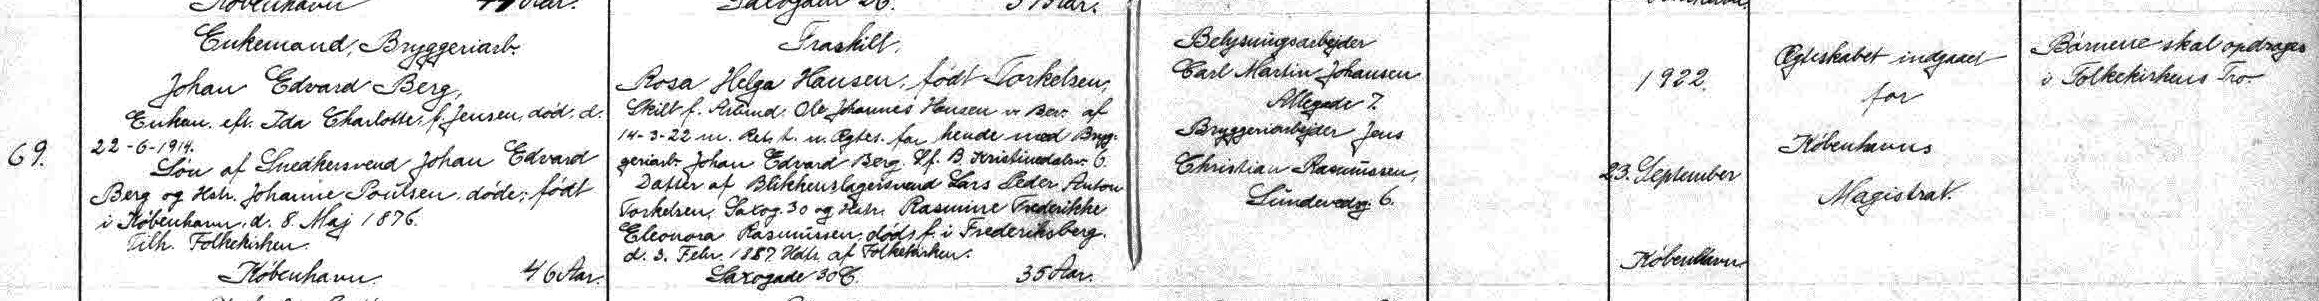 København
Saxogade 26.
Enkemand, Bryggeriarb.
Johan Edvard Berg,
Enkem. eft. Ida Charlotte, f. Jensen, død. d.
69.
22-6-1914.
Søn af Snedkersvend Johan Edvard
Berg og Hstr. Johanne Poulsen, døde; født
i København, d. 8. Maj 1876.
Tilh. Folkekirken.
København. 46 Aar.
Fraskilt.
Rosa Helga Hansen, født Torkelsen,
Skilt f. Arbmd. Ole Johannes Hansen v. Bev. af
14-3-22 m. Ret t. n. Ægtes. for hende med Brygg-
geriarb. Johan Edvard Berg. B. Kristinedalsv. 6.
Datter af Blikkenslagersvend Lars Peder Anton
Torkelsen, Saxog. 30 og Hstr. Rasmine Frederikke
Eleonora Rasmussen, døds f. i Frederiksberg.
d. 3. Febr. 1887. Hdlr. af Folkekirken.
Saxogade 30 C. 35 Aar.
Belysningsarbejder
Carl Martin Johansen
Allegade 7.
Bryggeriarbejder Jens
Christian Rasmussen,
Sundevedsg. 6.
1922.
23. September
København
Ægteskabet indgaaet
for
Københavns
Magistrat.
Børnene skal opdrages
i Folkekirkens Tro.